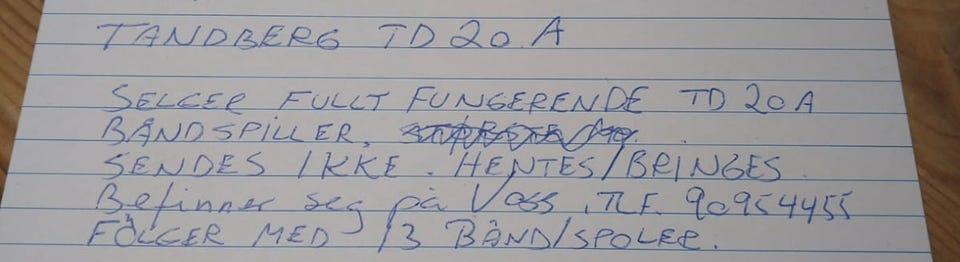 TANDBERG TD 20 A
SELGER FULLT FUNGERENDE TD 20 A
BÅNDSPILLER.
SENDES IKKE. HENTES/BRINGES.
Befinner seg på Voss. TLF. 90954455
FÖLGER MED 13 BÅND/SPOLER.